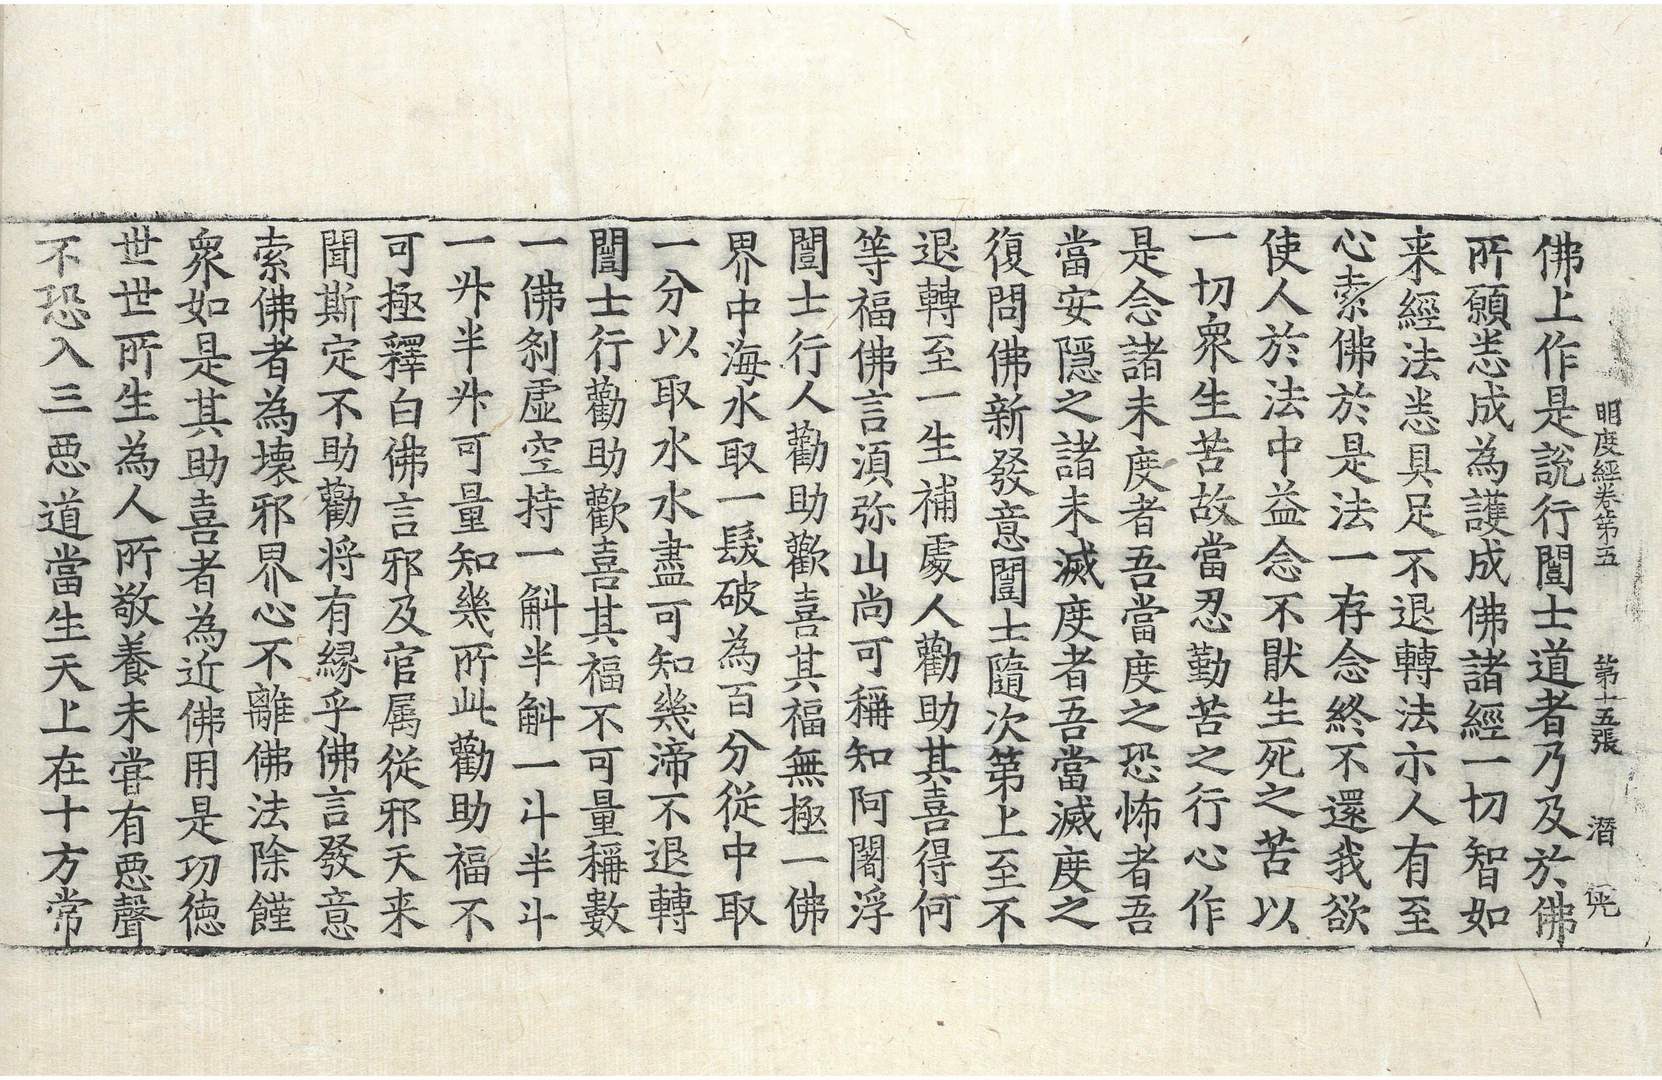 明度經卷第五 第十五張 潛
佛上作是說行闓士道者乃及於佛
所願悉成為護成佛諸經一切智如
来經法悉具足不退轉法示人有至
心索佛於是法一存念終不還我欲
使人於法中益念不猒生死之苦以
一切衆生苦故當忍勤苦之行心作
是念諸未度者吾當度之恐怖者吾
當安隱之諸未滅度者吾當滅度之
復問佛新發意闓士隨次第上至不
退轉至一生補處人勸助其喜得何
等福佛言湏弥山尚可稱知阿闍浮
闓士行人勸助歡喜其福無極一佛
界中海水取一髮破為百分從中取
一分以取水水盡可知幾渧不退轉
闓士行勸助歡喜其福不可量稱數
一佛刹虛空持一斛半斛一斗半斗
一升半升可量知幾所此勸助福不
可極釋白佛言邪及官属從邪天来
聞斯定不助勸将有緣乎佛言發意
索佛者為壞邪界心不離佛法除饉
衆如是其助喜者為近佛用是功徳
世世所生為人所敬養未甞有惡聲
不恐入三惡道當生天上在十方常